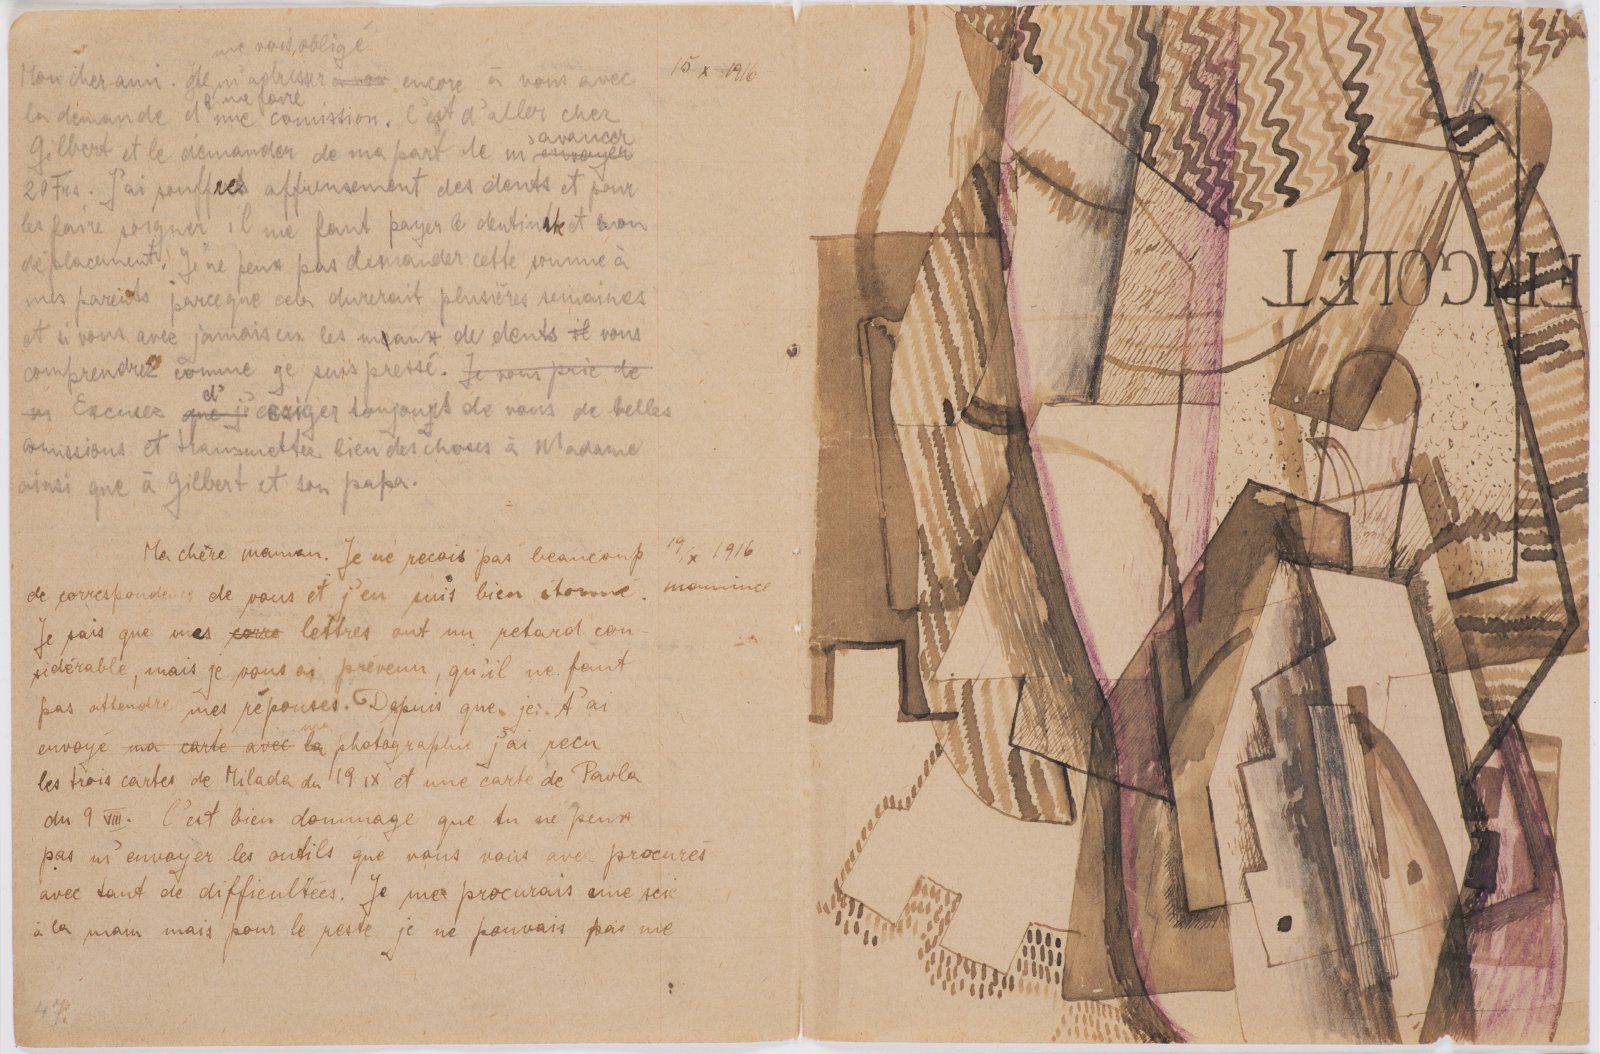 me vois, obligé
Mon cher ami. Je m'adresser encore à vous avec 15 X 1916
la demande d'une comission. C'est d'aller chez
me faire
Gilbert et le demander de ma part de m'envoyer
avancer
20 Frs. J'ai souffres affreusement des dents et pour
les faire soigner il me faut payer le dentiste et mon
déplacement. Je ne peux pas demander cette somme à
mes parents parceque cela durerait plusières semaines
et si vous avez jamais eu les maux de dents il vous
comprendrez comme je suis pressé. Je vous prie de
m Excusez que j' d'exziger toujours de vous de telles
comissions et transmettez bien des choses à Madame
ainsi que à Gilbert et son papa.
Ma chère maman. Je ne reçois pas beaucoup 19/X 1916
de correspondence de vous et j'en suis bien étonné. mamince
Je sais que mes corre lettres ont un retard con-
sidérable, mais je vous ai prévenu, qu'il ne faut
pas attendre mes réponses. Depuis que je t'ai
envoyé ma carte avec la ma photographie j'ai reçu
les trois cartes de Milada du 19 IX et une carte de Pavla
du 9 VIII. C'est bien dommage que tu ne peux
pas m'envoyer les outils que vous vous avez procurés
avec tant de difficultées. Je me procurais une scie
à la main mais pour le reste je ne pouvais pas me
47.
RIGOLET